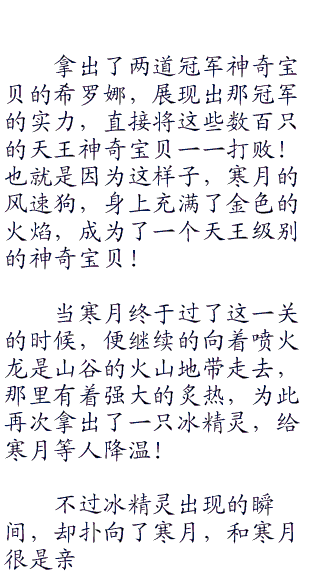 拿出了两道冠军神奇宝
贝的希罗娜，展现出那冠军
的实力，直接将这些数百只
的天王神奇宝贝一一打败！
也就是因为这样子，寒月的
风速狗，身上充满了金色的
火焰，成为了一个天王级别
的神奇宝贝！
当寒月终于过了这一关
的时候，便继续的向着喷火
龙是山谷的火山地带走去，
那里有着强大的炙热，为此
再次拿出了一只冰精灵，给
寒月等人降温！
不过冰精灵出现的瞬
间，却扑向了寒月，和寒月
很是亲